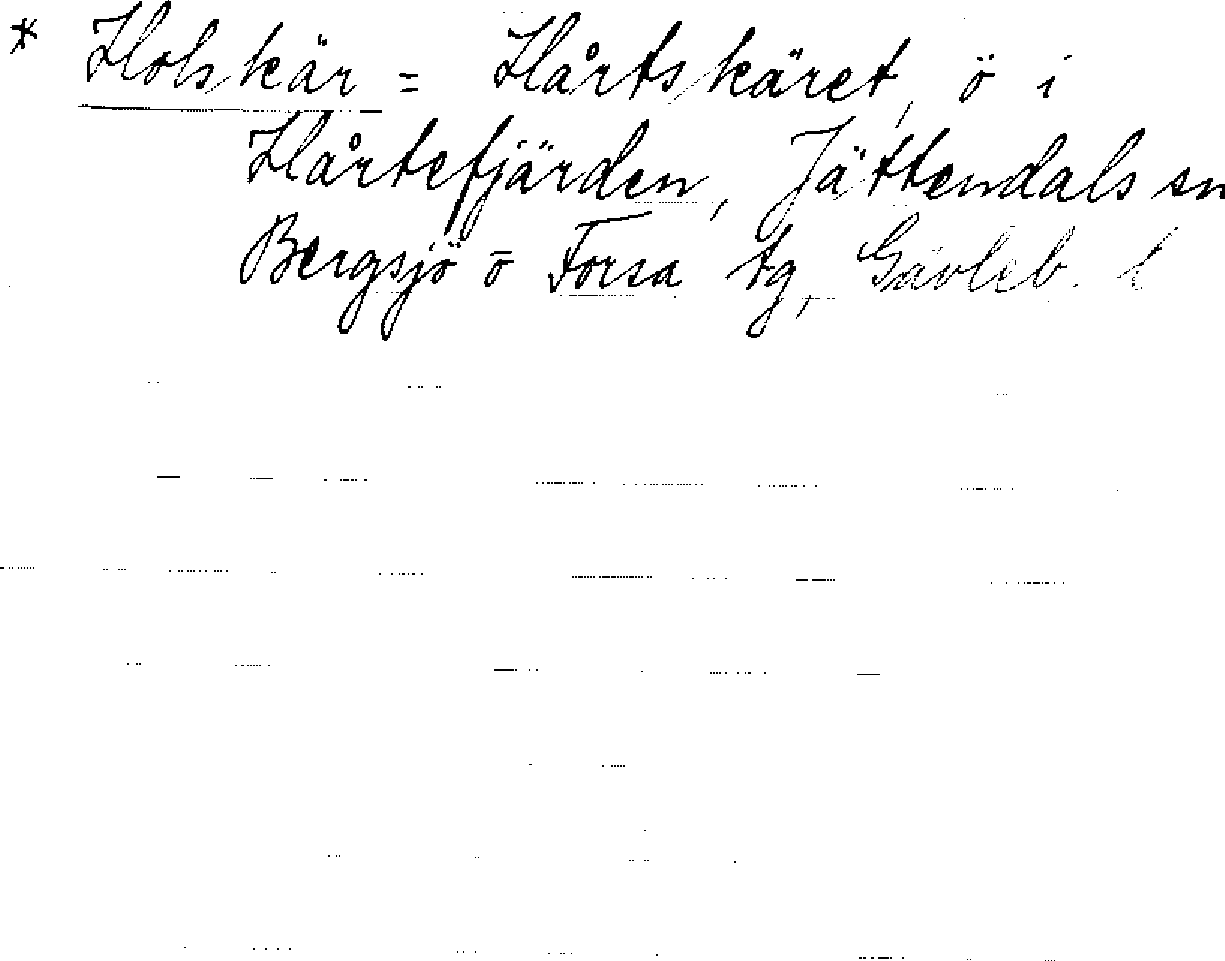 * Holskär = Hårtskäret, ö i
Hårtefjärden, Jättendals sn
Bergsjö o Forsa tg, Gävleb. l